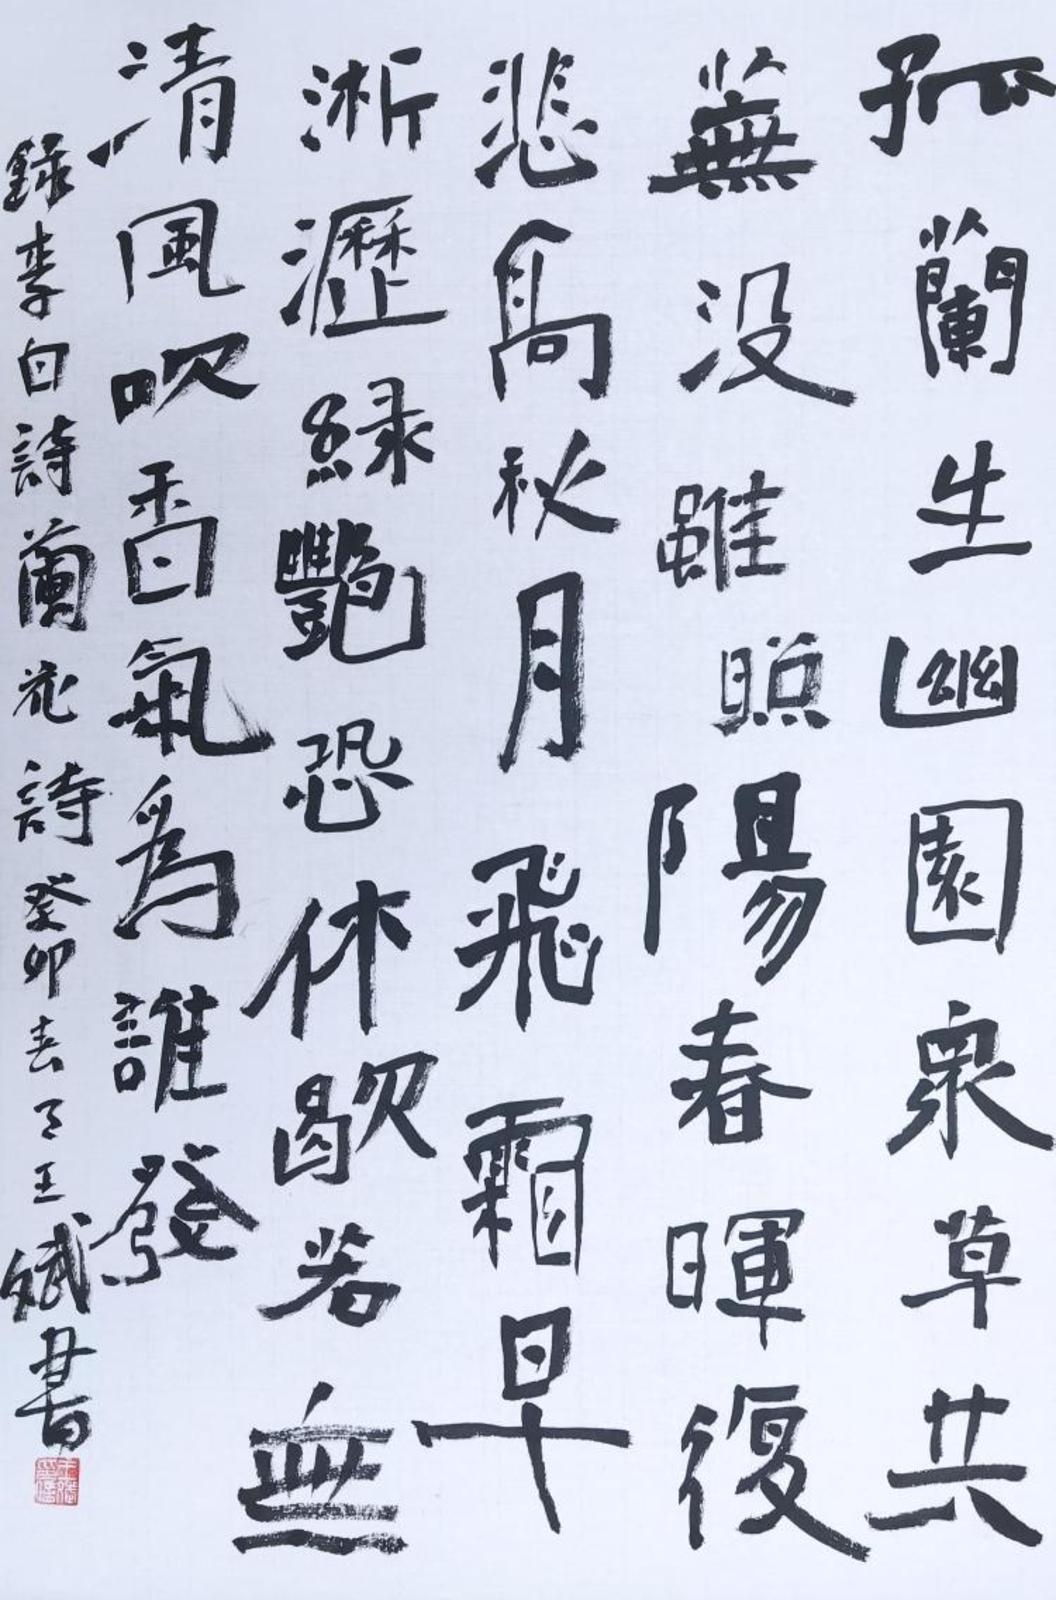 孤蘭生幽園衆草共
蕪没雖照陽春暉復
悲高秋月飛霜早
淅瀝緑艷恐休歇若無
清風吹香氣爲誰發
録李白詩蘭花詩癸卯春月王斌書